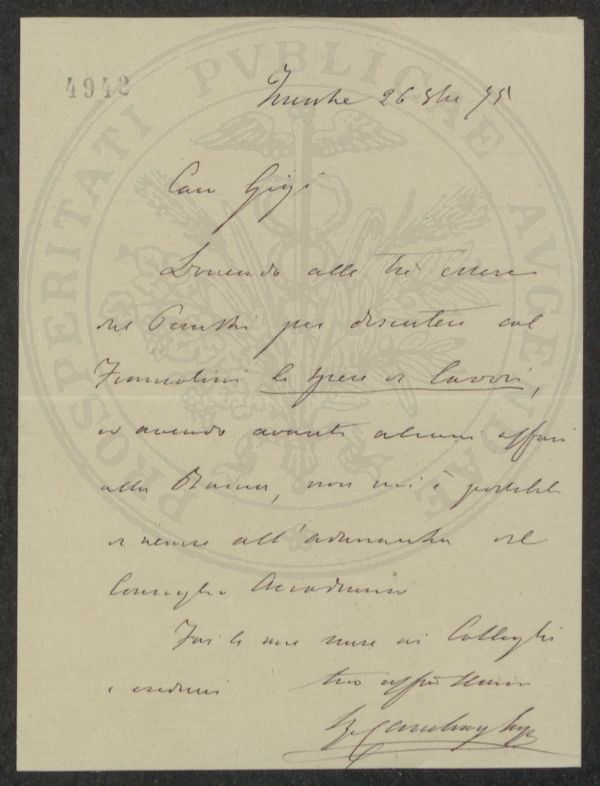 4942
PROSPERITATI PVBLICAE AVGENDAE
26 8bre 75
Caro Gigi
Dovendo alle tre essere
dal Peruzzi per discutere col
le spese di lavori,
ed avendo avanti alcuni affari
alla Banca, non mi è possibile
di venire all'adunanza del
Consiglio Accademico
Fai le mie scuse ai Colleghi
e credimi tuo affmo